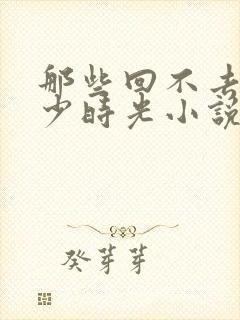 那些回不去
少时光小說
癸芽芽